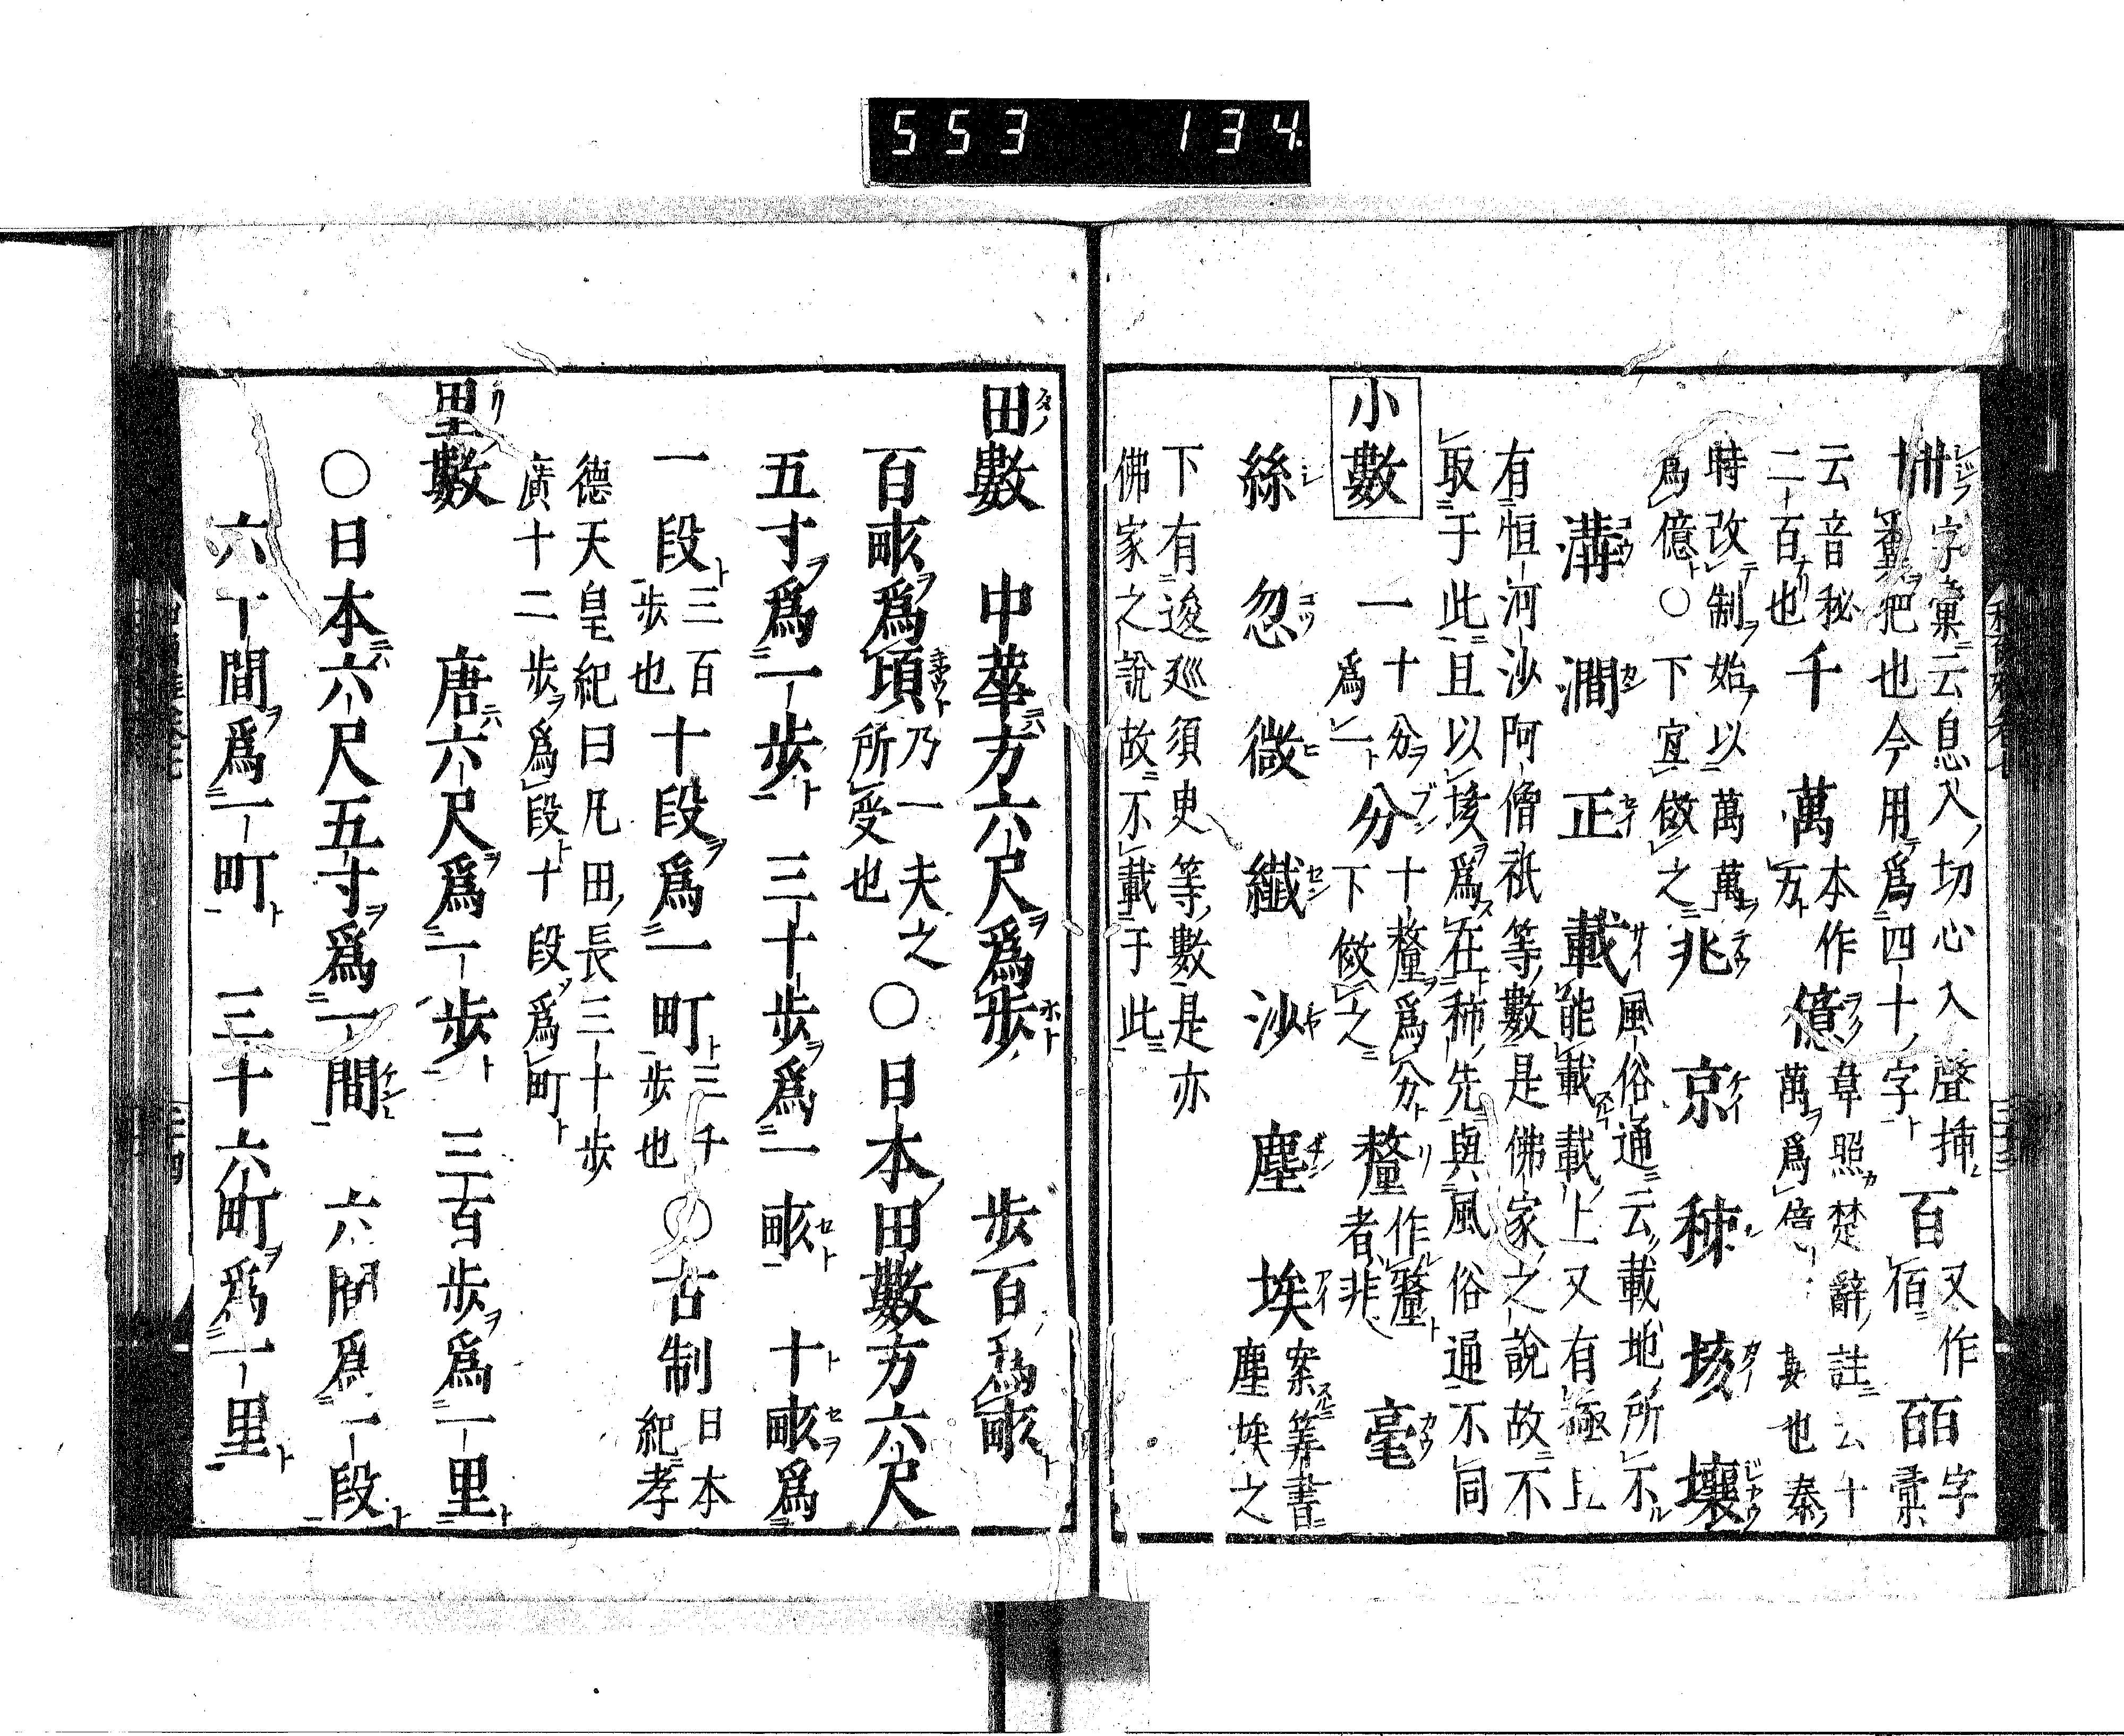 553 134
卌 字彙云息入切心入聲插
糞杷也今用爲四十字 百 又作佰 百 字彙
云音秘
二百也 千 萬 本作万 億 韋照楚辭註云十
萬爲億 也秦
時改制始以萬萬
爲億○下宜倣之 兆 京 秭 垓 壤
溝 澗 正 載 風俗通云載地所不
能載載上又有極上
有恒河沙阿僧祇等數是佛家之説故不
取于此且以垓爲在秭先與風俗通不同
小數 一 十分
爲一 分 十釐爲分
下倣之 釐 作釐
者非 毫
絲 忽 微 纖 沙 塵 埃 案筭書
塵埃之
下有逡巡須臾等數是亦
佛家之説故不載于此
田數 中華方六尺爲歩 歩百爲畝
百畝爲頃 乃一夫之
所受也 ○日本田數方六尺
五寸爲一歩 三十歩爲一畝 十畝爲
一段 三百
歩也 十段爲一町 三千
歩也 ○古制 日本
紀孝
德天皇紀曰凡田長三十歩
廣十二歩爲段十段爲町
里數 唐六尺爲一歩 三百歩爲一里
○日本六尺五寸爲一間 六間爲一段
六十間爲一町 三十六町爲一里